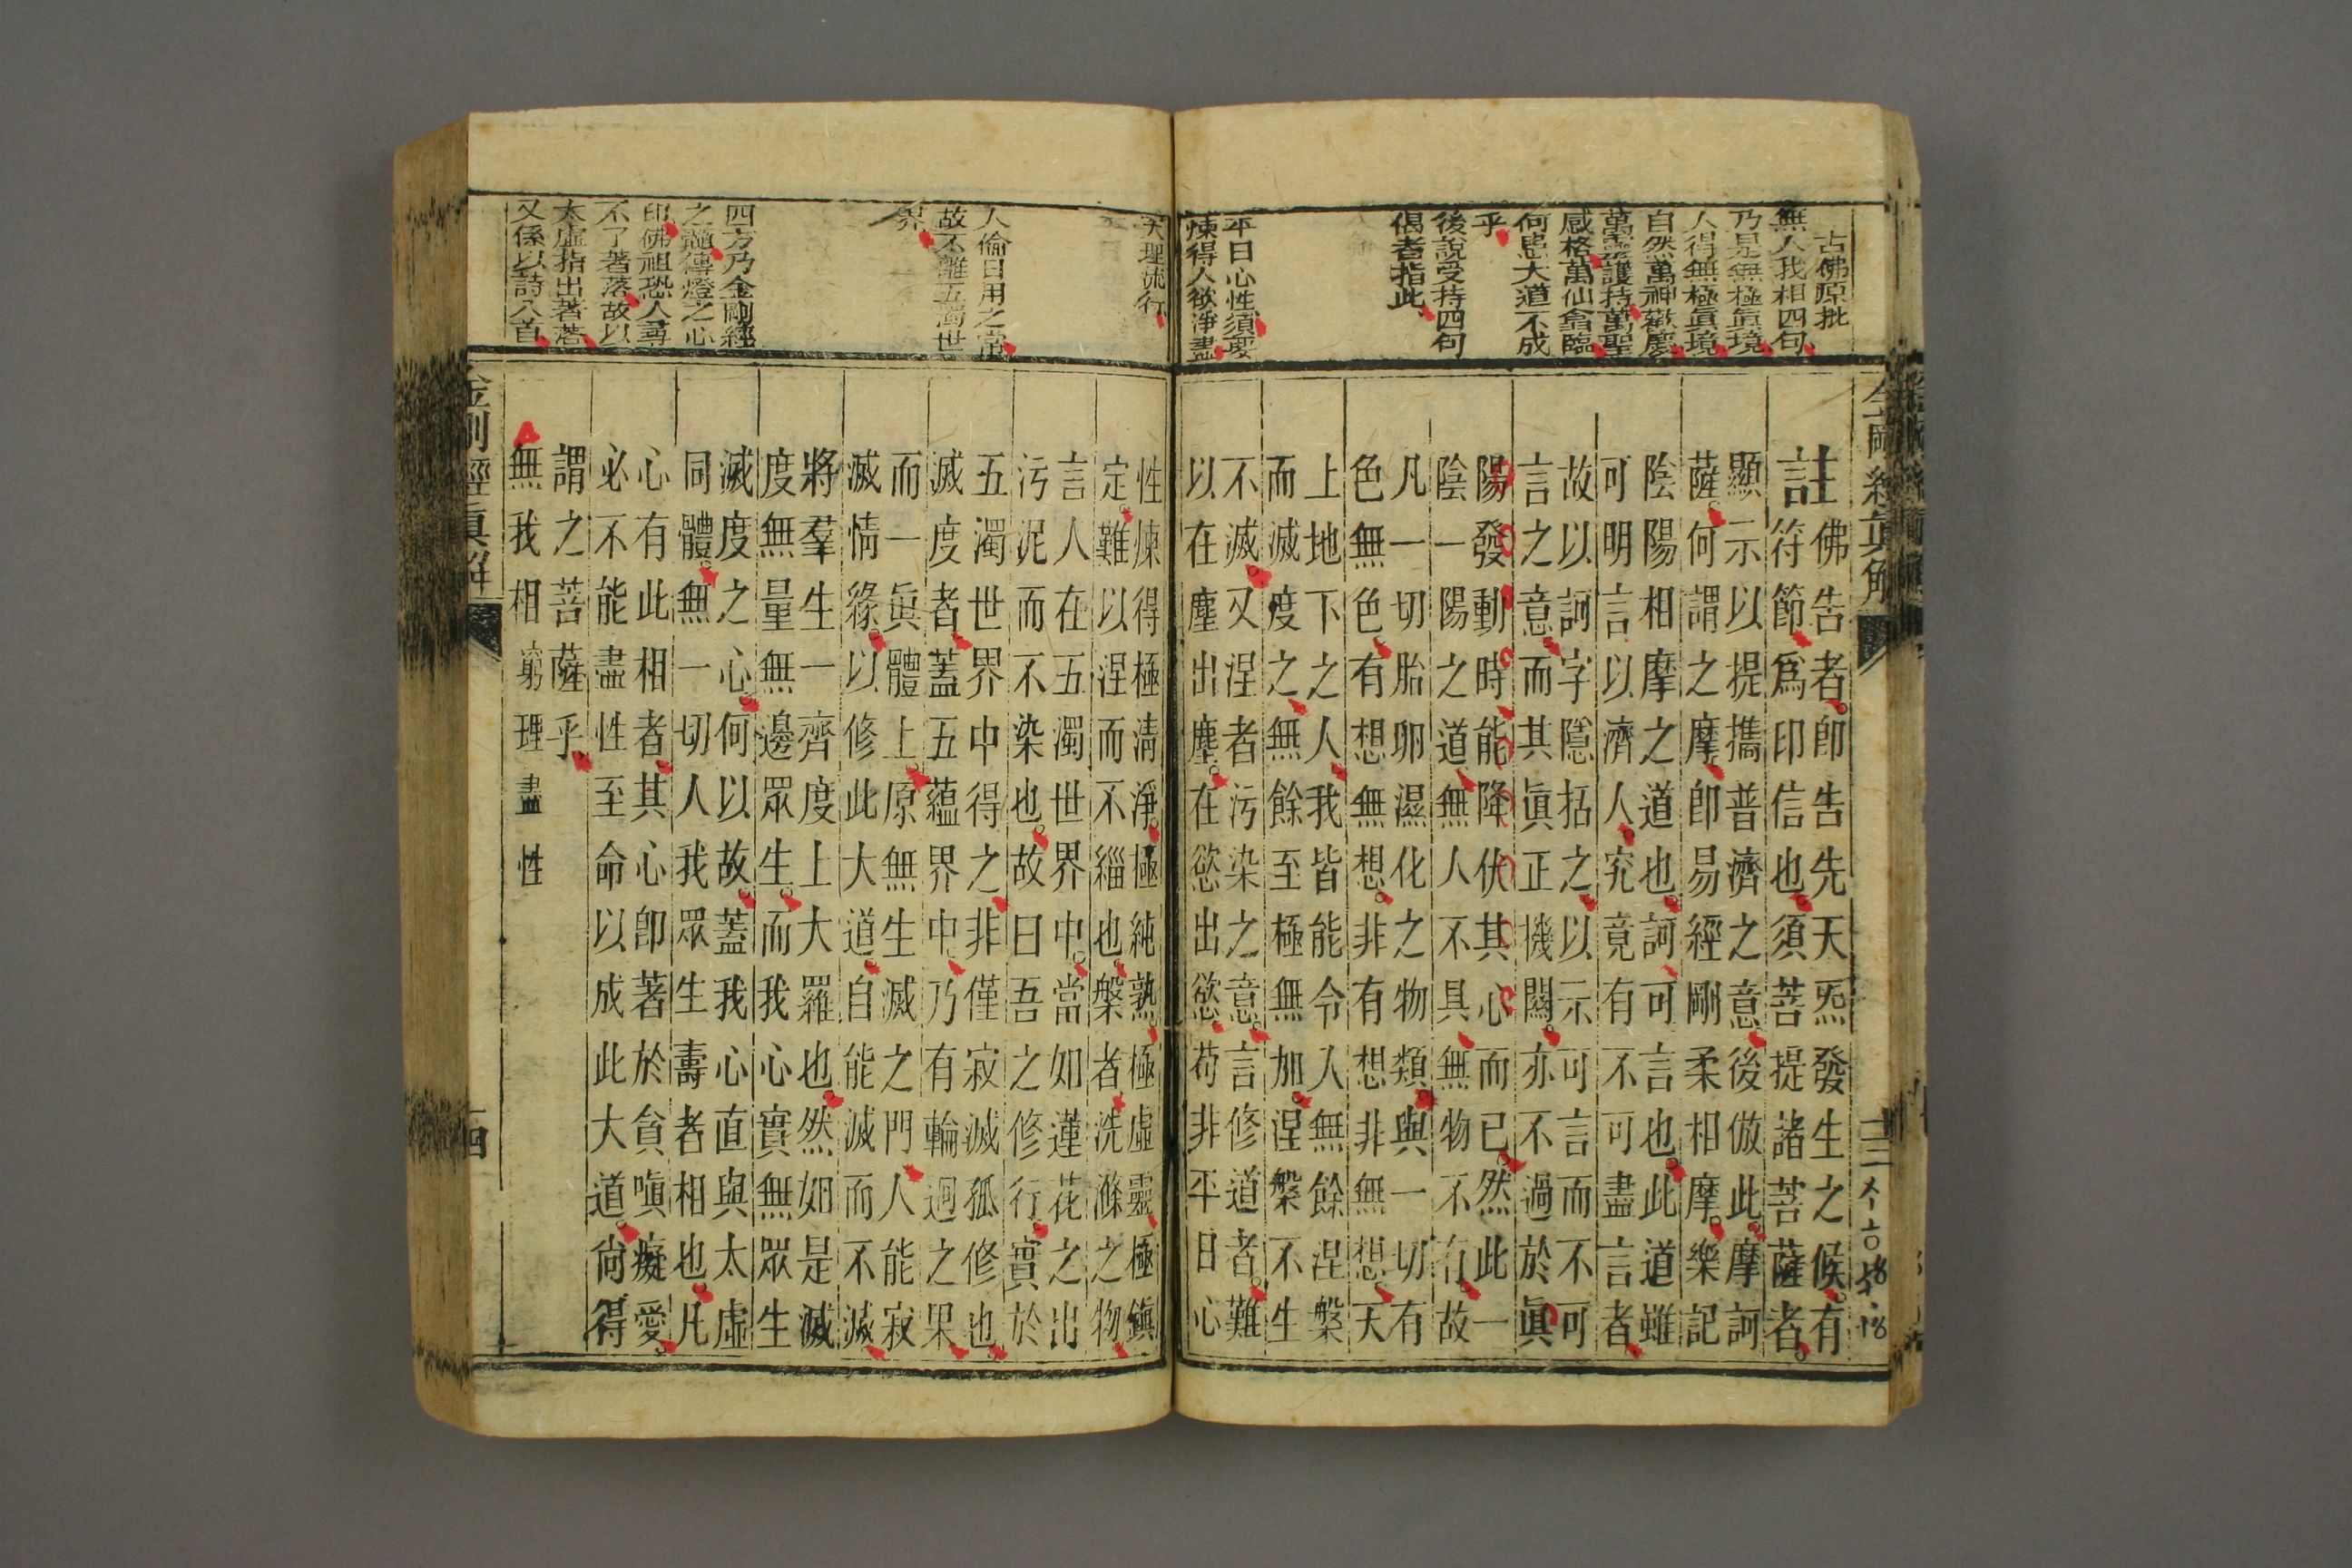 金剛經真解
古佛原批
無人我相四句
乃是無極眞境
人得無極眞境
自然萬神歡慶
萬靈護持萬聖
感格萬仙會臨
何患大道不成
乎
後說受持四句
偈者指此
平日心性須要
煉得人欲淨盡
註
佛告者卽告先天炁發生之候有
符節爲印信也須菩提諸菩薩者
顯示以提攜普濟之意後倣此摩訶
薩何謂之摩卽易經剛柔相摩樂記
陰陽相摩之道也訶可言也此道雖
可明言以濟人究竟有不可盡言者
故以訶字隱括之以示可言而不可
言之意而其眞正機關亦不過於眞
陽發動時能降伏其心而已然此一
陰一陽之道無人不具無物不有故
凡一切胎卵濕化之物類與一切有
色無色有想無想非有想非無想天
上地下之人我皆能令人無餘涅槃
而滅度之無餘至極無加涅槃不生
不滅又涅者污染之意言修道者難
以在塵出塵在慾出慾苟非平日心
天理流行
人倫日用之常
故不離五濁世
界
四方乃金剛經
之髓傳燈之心
印佛祖恐人尋
不了著落故以
太虛指出著落
又係以詩八首
性煉得極淸淨極純熟極虛靈極鎭
定難以涅而不緇也槃者洗滌之物
言人在五濁世界中當如蓮花之出
污泥而不染也故曰吾之修行實於
五濁世界中得之非僅寂滅孤修也
滅度者蓋五蘊界中乃有輪迴之果
而一眞體上原無生滅之門人能寂
滅情緣以修此大道自能滅而不滅
將羣生一齊度上大羅也然如是滅
度無量無邊眾生而我心實無眾生
滅度之心何以故蓋我心直與太虛
同體無一切人我眾生壽者相也凡
心有此相者其心卽著於貪嗔癡愛
必不能盡性至命以成此大道尙得
謂之菩薩乎
無我相窮理盡性
金剛經眞解
十四